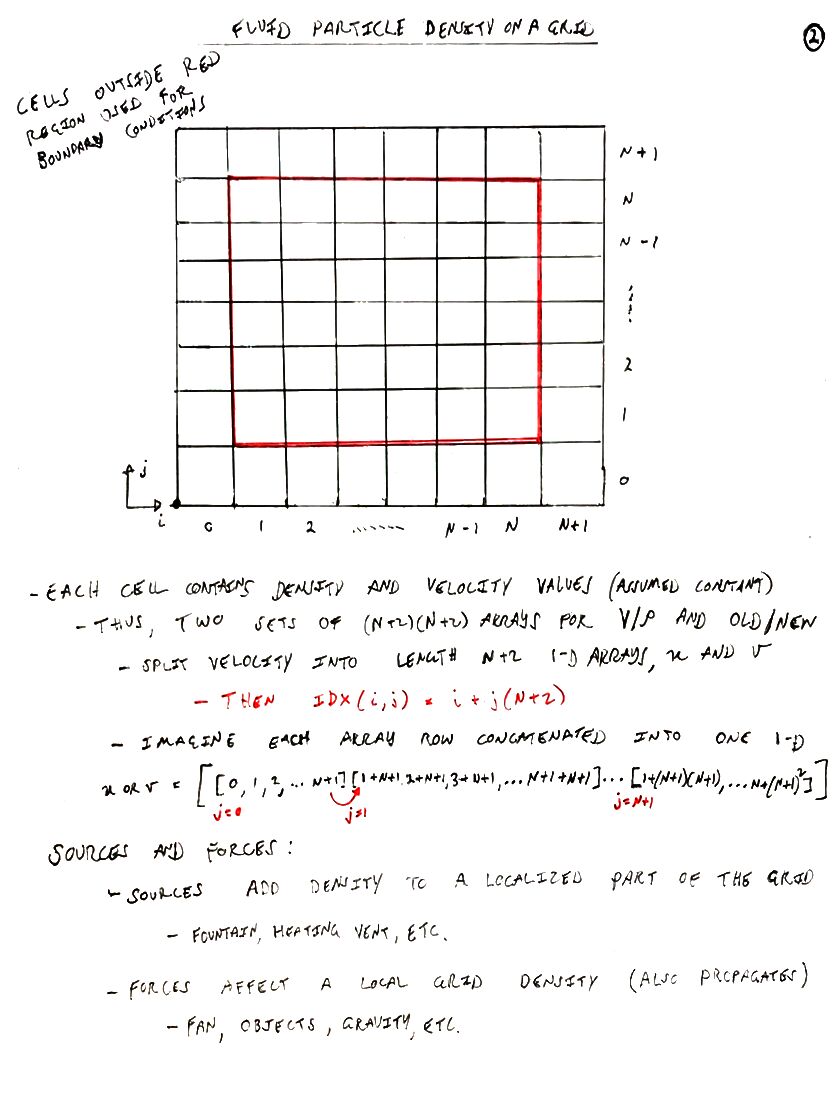 FLUID PARTICLE DENSITY ON A GRID
2
CELLS OUTSIDE RED
REGION USED FOR
BOUNDARY CONDITIONS
N+1
N
N-1
2
1
0
j
i
0 1 2 ....... N-1 N N+1
- EACH CELL CONTAINS DENSITY AND VELOCITY VALUES (ASSUMED CONSTANT)
- THUS, TWO SETS OF (N+2)(N+2) ARRAYS FOR V/ρ AND OLD/NEW
- SPLIT VELOCITY INTO LENGTH N+2 1-D ARRAYS, u AND v
- THEN IDX(i,j) = i + j(N+2)
- IMAGINE EACH ARRAY ROW CONCATENATED INTO ONE 1-D
u OR v = [[0, 1, 2, ... N+1][1+N+1, 2+N+1, 3+N+1, ... N+1+N+1] ... [1+(N+1)(N+1), ... N+(N+1)²]]
j=0 j=1 j=N+1
SOURCES AND FORCES:
- SOURCES ADD DENSITY TO A LOCALIZED PART OF THE GRID
- FOUNTAIN, HEATING VENT, ETC.
- FORCES AFFECT A LOCAL GRID DENSITY (ALSO PROPAGATES)
- FAN, OBJECTS, GRAVITY, ETC.